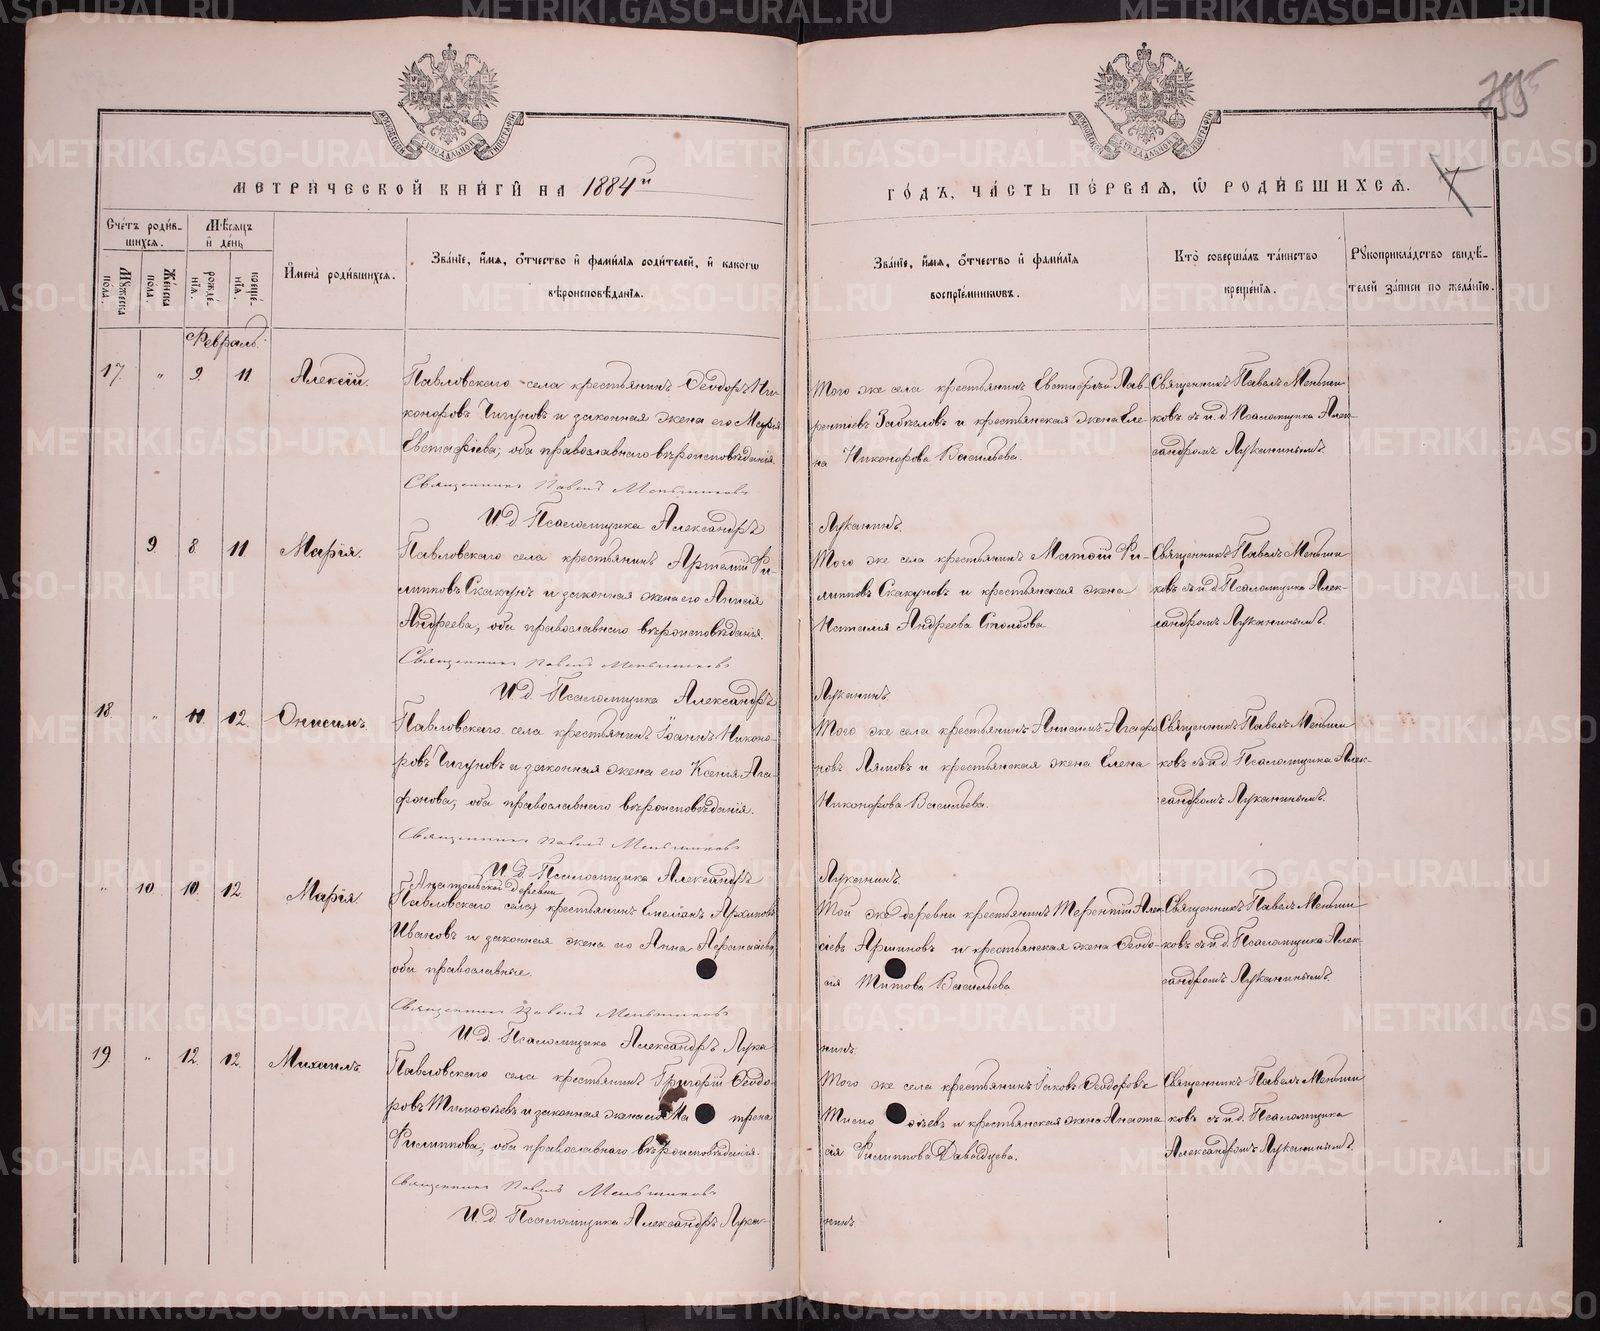 795
7
МЕТРИЧЕСКОЙ КНИГИ НА 1884й
ГОДЪ, ЧАСТЬ ПЕРВАЯ, Ѡ РОДИВШИХСЯ.
Счетъ родившихся.
Мѣсяцъ и день
Мужеска пола.
Женска пола.
рожденія.
крещенія.
Имена родившихся.
Званіе, имя, отчество и фамилія родителей, и какогѡ
вѣроисповѣданія.
Званіе, имя, отчество и фамилія
воспріемниковъ.
Кто совершалъ таинство
крещенія.
Рукоприкладство свидѣ-
телей записи по желанію.
Февраль.
17. " 9. 11. Алексій.
Павловскаго села крестьянинъ Ѳеодоръ Ни-
коноровъ Чигуновъ и законная жена его Марія
Евстафіева, оба православнаго вѣроисповѣданія.
Священникъ Павелъ Меньшиковъ
И. д. Псаломщика Александръ
Того же села крестьянинъ Евстигнѣй Лав-
рентіевъ и крестьянская жена Еле-
на Никонорова Васильева.
Луканинъ.
Священникъ Павелъ Меньши
ковъ съ и. д. Псаломщика Алек-
сандромъ Луканинымъ.
9. 8. 11. Марія.
Павловскаго села крестьянинъ Артемій Фи-
липповъ Скакунъ и законная жена его Анисія
Андреева, оба православнаго вѣроисповѣданія.
Священникъ Павелъ Меньшиковъ
И. д. Псаломщика Александръ
Того же села крестьянинъ Матѳій Фи-
липповъ Скакуновъ и крестьянская жена
Наталія Андреева Столбова
Луканинъ.
Священникъ Павелъ Меньши
ковъ съ и. д. Псаломщика Алек-
сандромъ Луканинымъ.
18. " 10. 12. Онисимъ.
Павловскаго села крестьянинъ Іоаннъ Никоно-
ровъ Чигуновъ и законная жена его Ксенія Ага-
фонова, оба православнаго вѣроисповѣданія.
Священникъ Павелъ Меньшиковъ
И. д. Псаломщика Александръ
Того же села крестьянинъ Анисимъ Агафо
новъ Лямовъ и крестьянская жена Елена
Никонорова Васильева.
Луканинъ.
Священникъ Павелъ Меньши
ковъ съ и. д. Псаломщика Алек-
сандромъ Луканинымъ.
" 10. 10. 12. Марія.
деревни
Павловскаго села, крестьянинъ Емеліанъ Архиповъ
Ивановъ и законная жена его Анна Аѳанасіева,
оба православные.
Священникъ Павелъ Меньшиковъ
И. д. Псаломщика Александръ Лука
Той же деревни крестьянинъ Терентій Алек
сіевъ и крестьянская жена Ѳеодо-
сія Титова Васильева
нинъ.
Священникъ Павелъ Меньши
ковъ съ и. д. Псаломщика Алек-
сандромъ Луканинымъ.
19. " 12. 12. Михаилъ.
Павловскаго села крестьянинъ Григорій Ѳеодо-
ровъ Тимоѳѣевъ и законная жена его Ма трона
Филиппова, оба православнаго вѣроисповѣданія.
Священникъ Павелъ Меньшиковъ
И. д. Псаломщика Александръ Лука-
Того же села крестьянинъ Іаковъ Ѳеодоровъ
Тимо ѳѣевъ и крестьянская жена Анаста
сія Филиппова Давыдцева.
нинъ.
Священникъ Павелъ Меньши
ковъ съ и. д. Псаломщика
Александромъ Луканинымъ.
METRIKI.GASO-URAL.RU